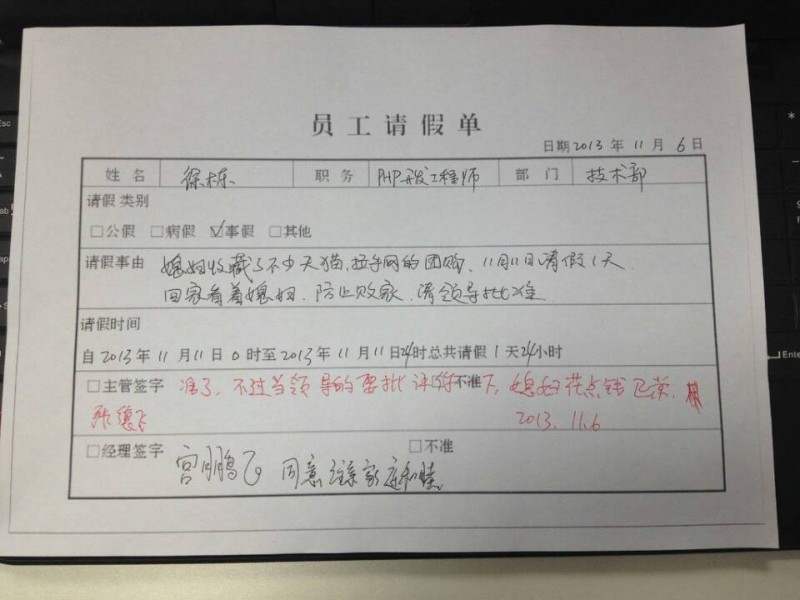 员工请假单
日期 2013 年 11 月 6 日
姓 名 徐栋 职 务 PHP开发工程师 部 门 技术部
请假 类别
□公假 □病假 ☑事假 □其他
请假事由 媳妇收藏了不少天猫,拉手网的团购,11月11日请假1天
回家看着媳妇,防止败家,请领导批准
请假时间
自 2013 年 11 月 11 日 0 时至 2013 年 11 月 11 日 24 时总共请假 1 天 24 小时
□主管签字 准了,不过当领导的要批评你 不准 下,媳妇花点钱正常,
2013. 11.6
□经理签字 □不准
宫鹏飞 同意 家庭和睦